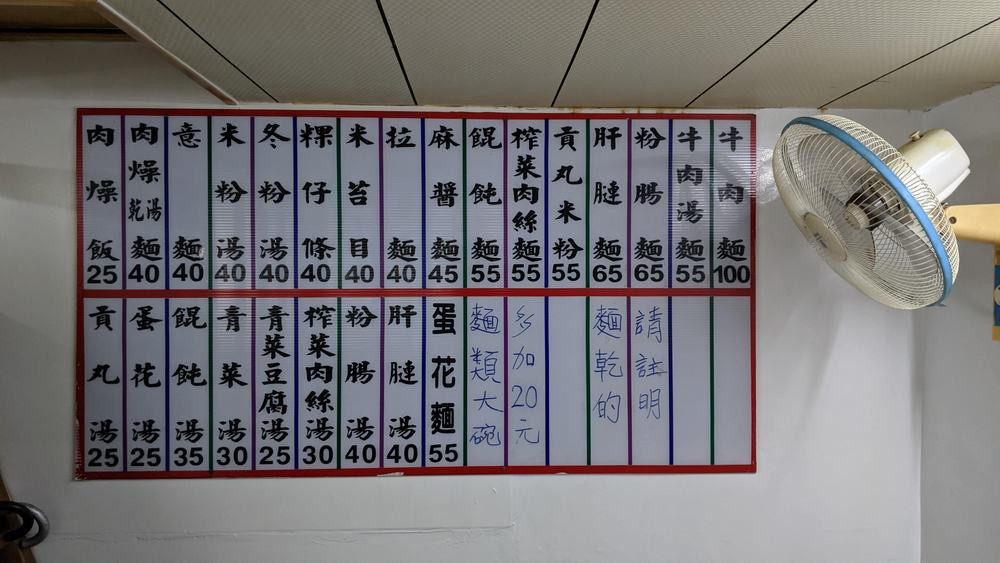 肉燥飯25
肉燥乾湯麵40
意麵40
米粉湯40
冬粉湯40
粿仔條40
米苔目40
拉麵40
麻醬麵45
餛飩麵55
榨菜肉絲麵55
貢丸米粉55
肝腱麵65
粉腸麵65
牛肉湯麵55
牛肉麵100
貢丸湯25
蛋花湯25
餛飩湯35
青菜湯30
青菜豆腐湯25
榨菜肉絲湯30
粉腸湯40
肝腱湯40
蛋花麵55
麵類大碗
多加20元
麵乾的
請註明